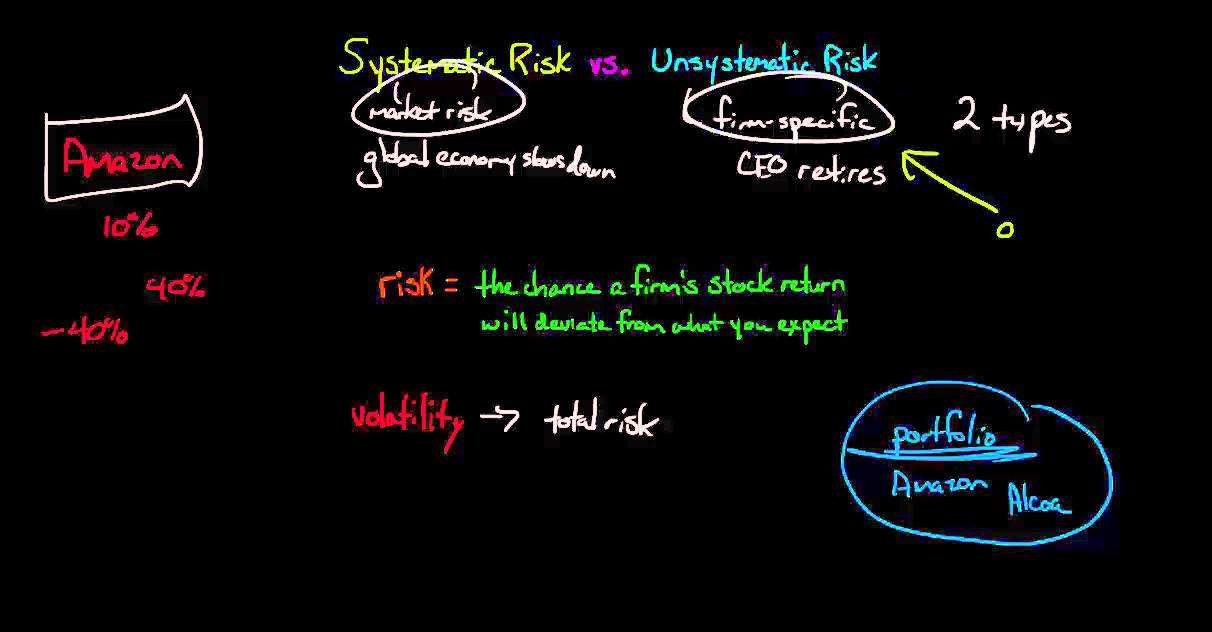 Systematic Risk vs. Unsystematic Risk
market risk
firm-specific
2 types
global economy slows down
CEO retires
Amazon
10%
40%
-40%
0
risk = the chance a firm's stock return
will deviate from what you expect
volatility → total risk
portfolio
Amazon Alcoa